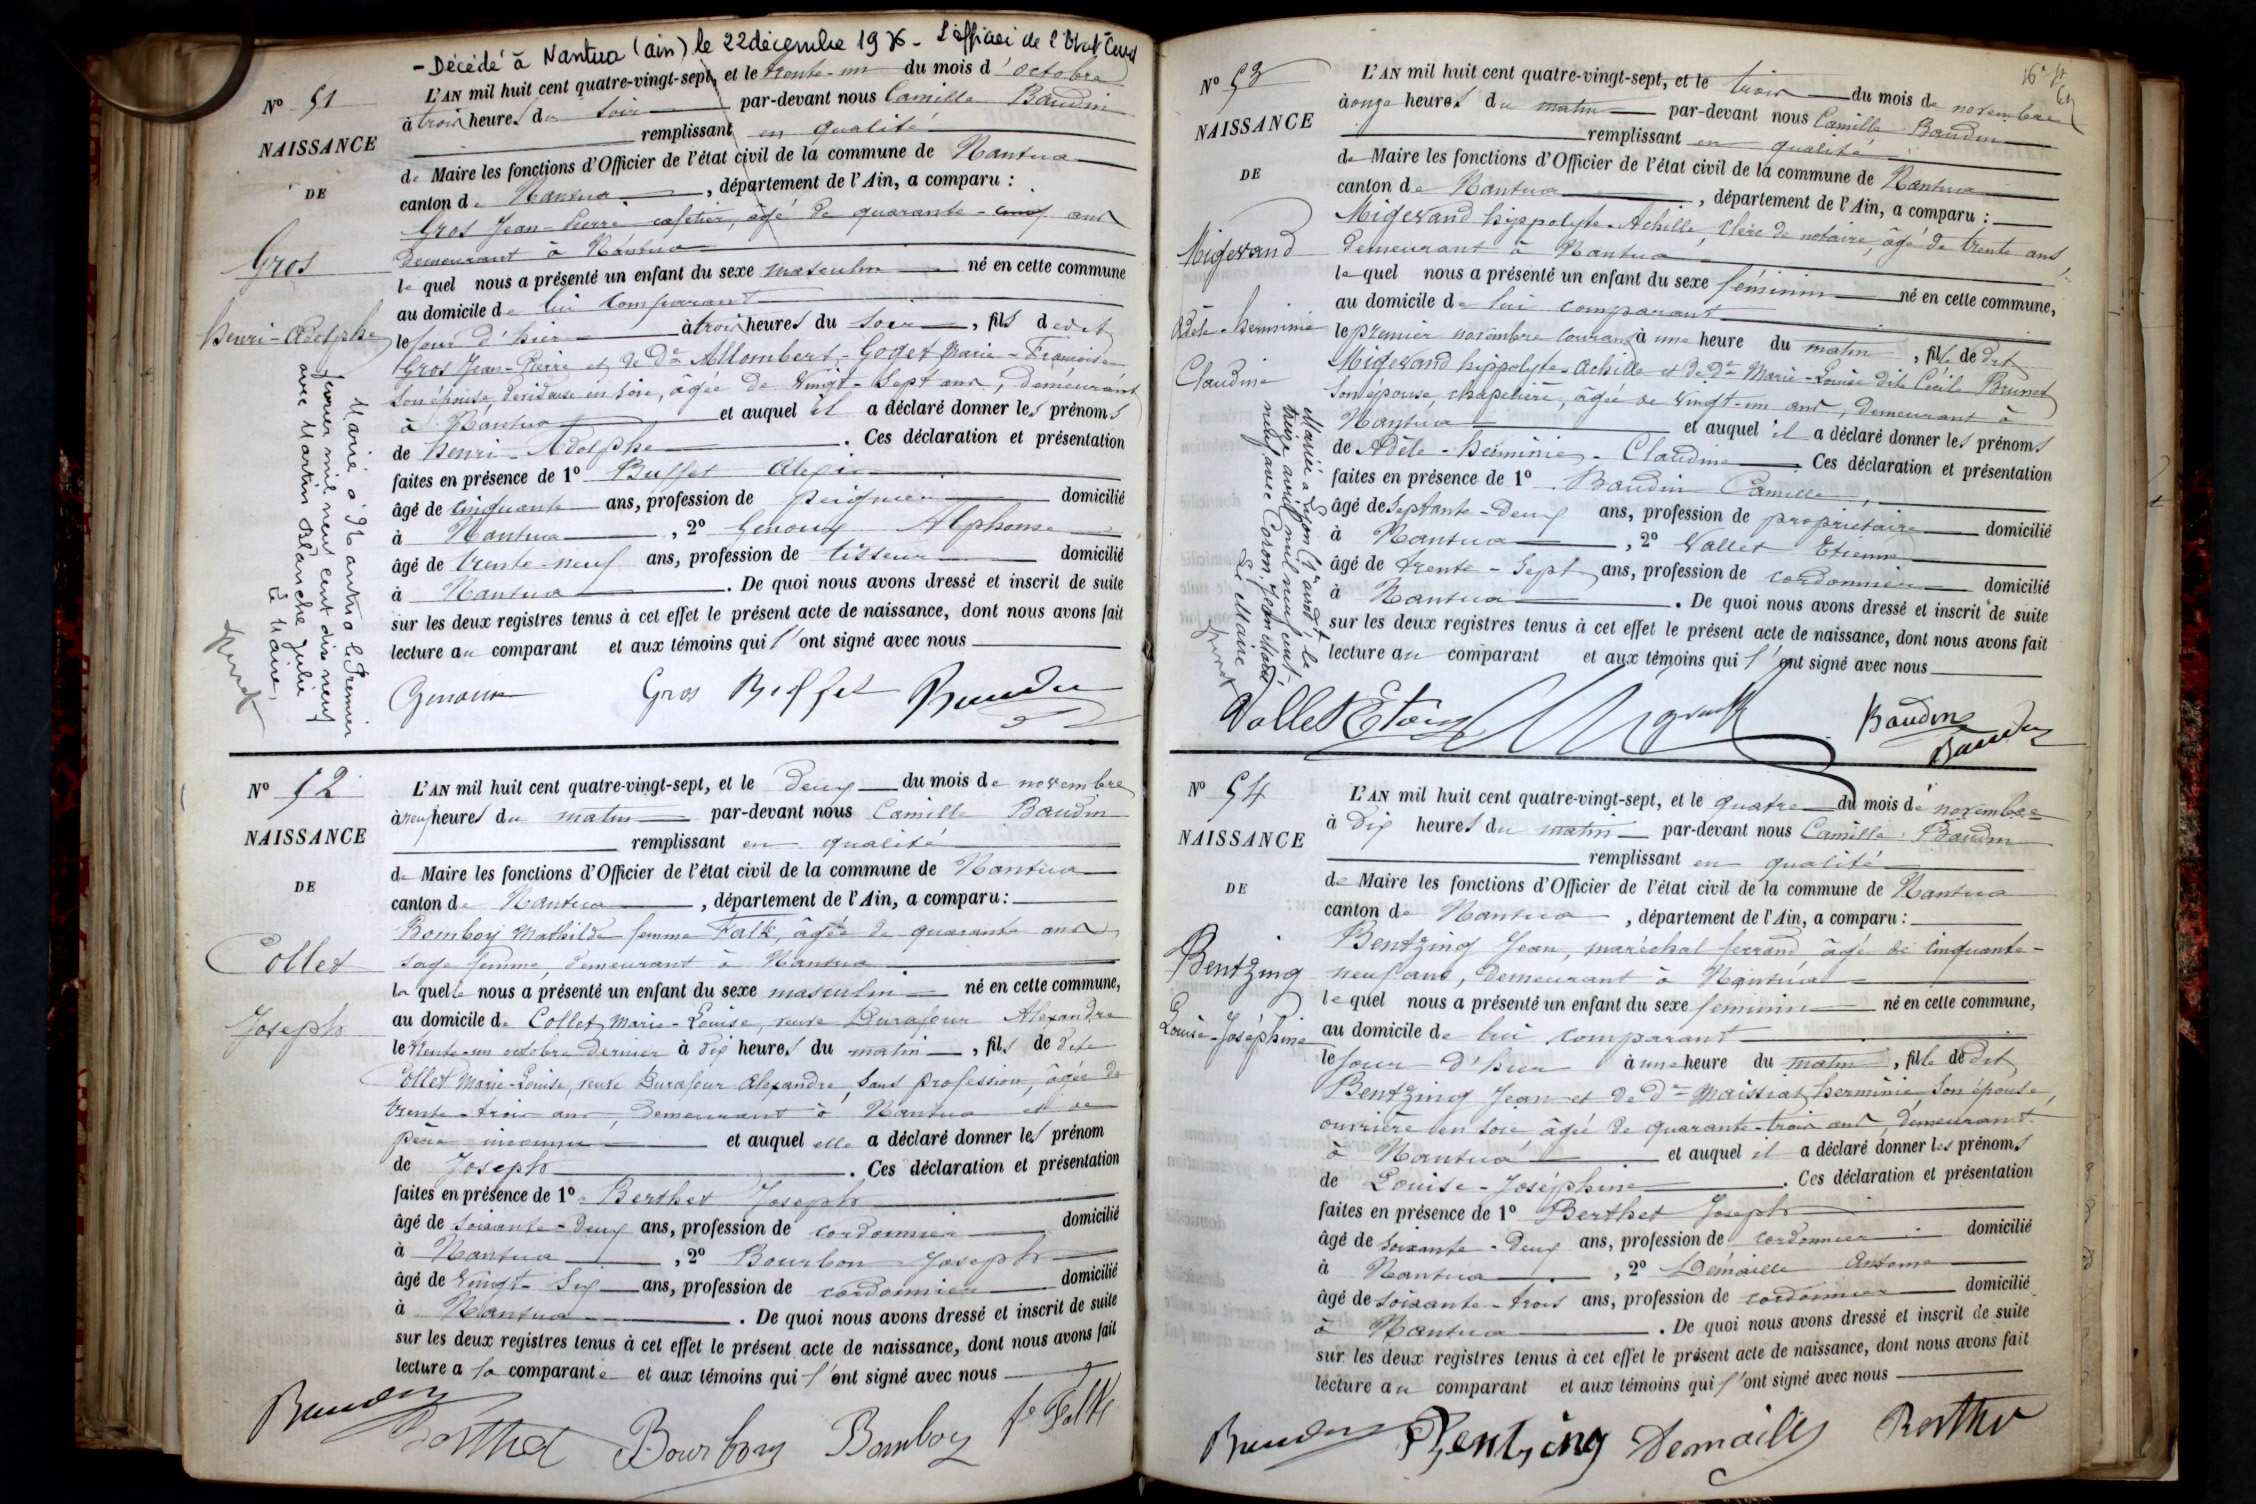 - Décédé à Nantua (ain) le 22 décembre 19 - L'officier de l'Etat Civil
N° 51
NAISSANCE
DE
Gros
Henri-Adolphe
Marié à Nantua le Premier
février mil neuf cent dix neuf
avec Martin Blanche Julie
Le Maire,
L'AN mil huit cent quatre-vingt-sept, et le trente-un du mois d'octobre
à trois heures du soir par-devant nous Camille Baudin
remplissant en qualité
de Maire les fonctions d'Officier de l'état civil de la commune de Nantua
canton de Nantua, département de l'Ain, a comparu :
Gros Jean-Pierre cafetier, âgé de quarante-cinq ans
demeurant à Nantua
lequel nous a présenté un enfant du sexe masculin né en cette commune
au domicile de lui comparant
le jour d'hier à trois heures du soir, fils dedit
Gros Jean-Pierre et de De Allombert-Goget Marie-Françoise
son épouse, dévideuse en soie, âgée de vingt-sept ans, demeurant
à Nantua et auquel il a déclaré donner les prénoms
de Henri-Adolphe. Ces déclaration et présentation
faites en présence de 1° Buffet Alexis
âgé de cinquante ans, profession de peignier domicilié
à Nantua, 2° Genoux Alphonse
âgé de trente-neuf ans, profession de tisseur domicilié
à Nantua. De quoi nous avons dressé et inscrit de suite
sur les deux registres tenus à cet effet le présent acte de naissance, dont nous avons fait
lecture au comparant et aux témoins qui l'ont signé avec nous
Genoux Gros Buffet Baudin
N° 52
NAISSANCE
DE
Collet
Joseph
L'AN mil huit cent quatre-vingt-sept, et le deux du mois de novembre
à neuf heures du matin par-devant nous Camille Baudin
remplissant en qualité
de Maire les fonctions d'Officier de l'état civil de la commune de Nantua
canton de Nantua, département de l'Ain, a comparu :
Bomboy Mathilde femme Falk, âgée de quarante ans
sage femme, demeurant à Nantua
laquelle nous a présenté un enfant du sexe masculin né en cette commune,
au domicile de Collet Marie-Louise, veuve Durafour Alexandre
le trente-un octobre dernier à dix heures du matin, fils de dite
Collet Marie-Louise, veuve Durafour Alexandre, sans profession, âgée de
trente-trois ans, demeurant à Nantua et de
père inconnu et auquel elle a déclaré donner les prénom
de Joseph. Ces déclaration et présentation
faites en présence de 1° Berthet Joseph
âgé de soixante-deux ans, profession de cordonnier domicilié
à Nantua, 2° Bourbon Joseph
âgé de vingt-six ans, profession de cordonnier domicilié
à Nantua. De quoi nous avons dressé et inscrit de suite
sur les deux registres tenus à cet effet le présent acte de naissance, dont nous avons fait
lecture a la comparante et aux témoins qui l'ont signé avec nous
Baudin Berthet Bourbon Bomboy fe Falk
N° 53
NAISSANCE
DE
Migerand
Adèle-Herminie
Claudine
Mariée à Lyon (1er arrdt) le
treize avril mil neuf cent
neuf avec Coron, Jean Marie
Le Maire
L'AN mil huit cent quatre-vingt-sept, et le trois du mois de novembre
à onze heures du matin par-devant nous Camille Baudin
remplissant en qualité
de Maire les fonctions d'Officier de l'état civil de la commune de Nantua
canton de Nantua, département de l'Ain, a comparu :
Migerand hyppolyte-Achille, clerc de notaire, âgé de trente ans,
demeurant à Nantua
lequel nous a présenté un enfant du sexe féminin né en cette commune,
au domicile de lui comparant
le premier novembre courant à une heure du matin, fille de dit
Migerand hippolyte-Achille et de De Marie-Louise dite Cécile Brunet
son épouse, chapelière, âgée de vingt-un ans, demeurant à
Nantua et auquel il a déclaré donner les prénoms
de Adèle-Herminie-Claudine. Ces déclaration et présentation
faites en présence de 1° Baudin Camille,
âgé de septante-deux ans, profession de propriétaire domicilié
à Nantua, 2° Vallet Etienne
âgé de trente-sept ans, profession de cordonnier domicilié
à Nantua. De quoi nous avons dressé et inscrit de suite
sur les deux registres tenus à cet effet le présent acte de naissance, dont nous avons fait
lecture au comparant et aux témoins qui l'ont signé avec nous
Vallet Etienne Baudin
Baudin
N° 54
NAISSANCE
DE
Bentzing
Louise-Joséphine
L'AN mil huit cent quatre-vingt-sept, et le quatre du mois de novembre
à dix heures du matin par-devant nous Camille Baudin
remplissant en qualité
de Maire les fonctions d'Officier de l'état civil de la commune de Nantua
canton de Nantua, département de l'Ain, a comparu :
Bentzing Jean, maréchal ferrand, âgé de cinquante-
neuf ans, demeurant à Nantua
lequel nous a présenté un enfant du sexe féminin né en cette commune,
au domicile de lui comparant
le jour d'hier à une heure du matin, fille de dit
Bentzing Jean et de De Maissiat herminie son épouse,
ouvrière en soie, âgée de quarante-trois ans, demeurant
à Nantua et auquel il a déclaré donner les prénoms
de Louise-Joséphine. Ces déclaration et présentation
faites en présence de 1° Berthet Joseph
âgé de soixante-deux ans, profession de cordonnier domicilié
à Nantua, 2° Démaille Antoine
âgé de soixante-trois ans, profession de cordonnier domicilié
à Nantua. De quoi nous avons dressé et inscrit de suite
sur les deux registres tenus à cet effet le présent acte de naissance, dont nous avons fait
lecture au comparant et aux témoins qui l'ont signé avec nous
Baudin Bentzing Demaille Berthet